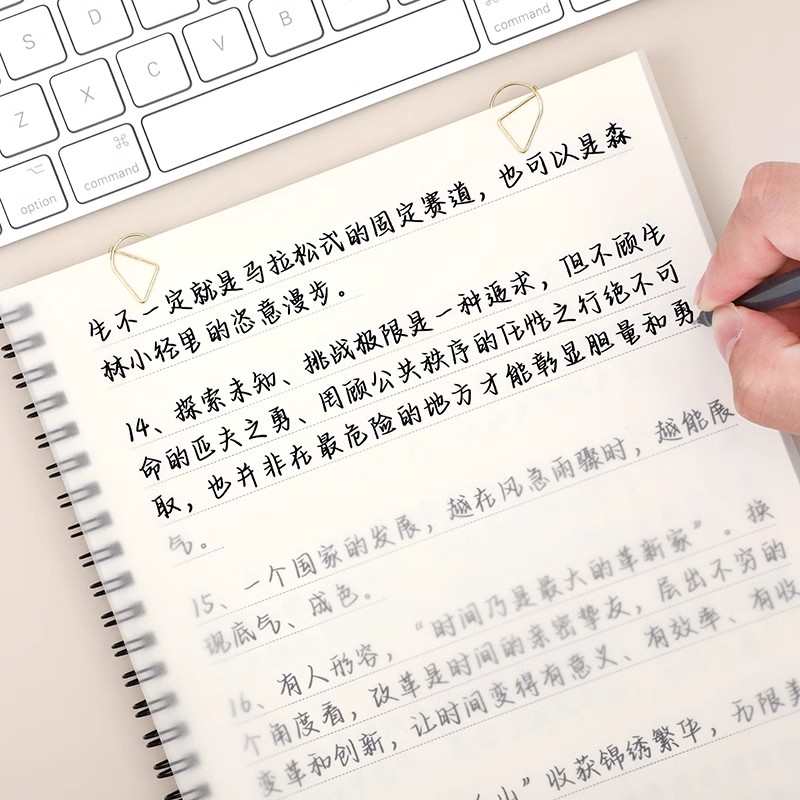 S
D
F
Z
X
C
V
B
N
option
⌥
command
⌘
⌘
command
⌥
option
生不一定就是马拉松式的固定赛道，也可以是森
林小径里的恣意漫步。
14、探索未知、挑战极限是一种追求，但不顾生
命的匹夫之勇、罔顾公共秩序的任性之行绝不可
取，也并非在最危险的地方才能彰显胆量和勇
气。
15、一个国家的发展，越在风急雨骤时，越能展
现底气、成色。
16、有人形容，“时间乃是最大的革新家”。换
个角度看，改革是时间的亲密挚友，层出不穷的
变革和创新，让时间变得有意义、有效率、有收
”收获锦绣繁华，无限美